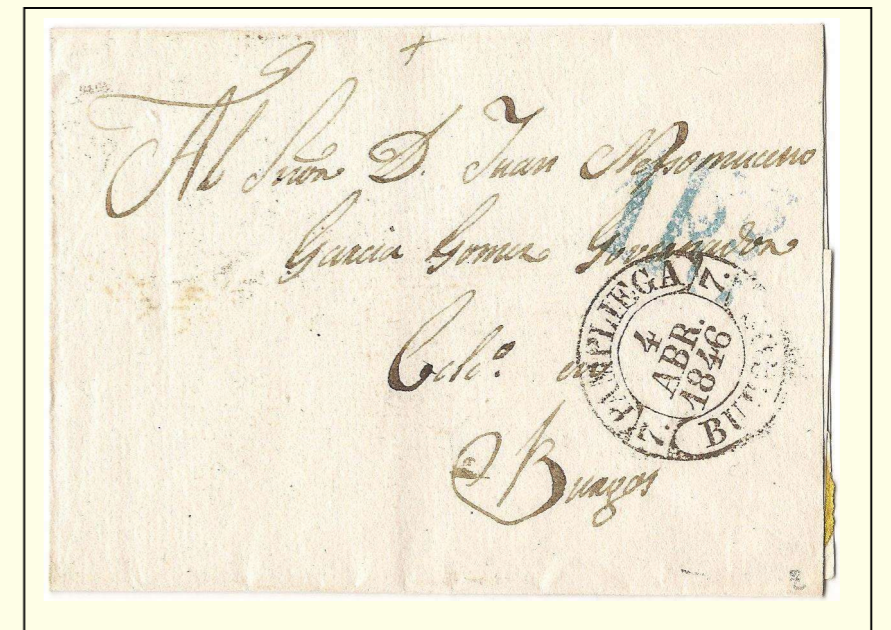 Al Señor D. Juan Nepomuceno
Garcia Gomez Governador
Ecleco. en
Burgos
PAMPLIEGA
7.
4
ABR.
1846
7.